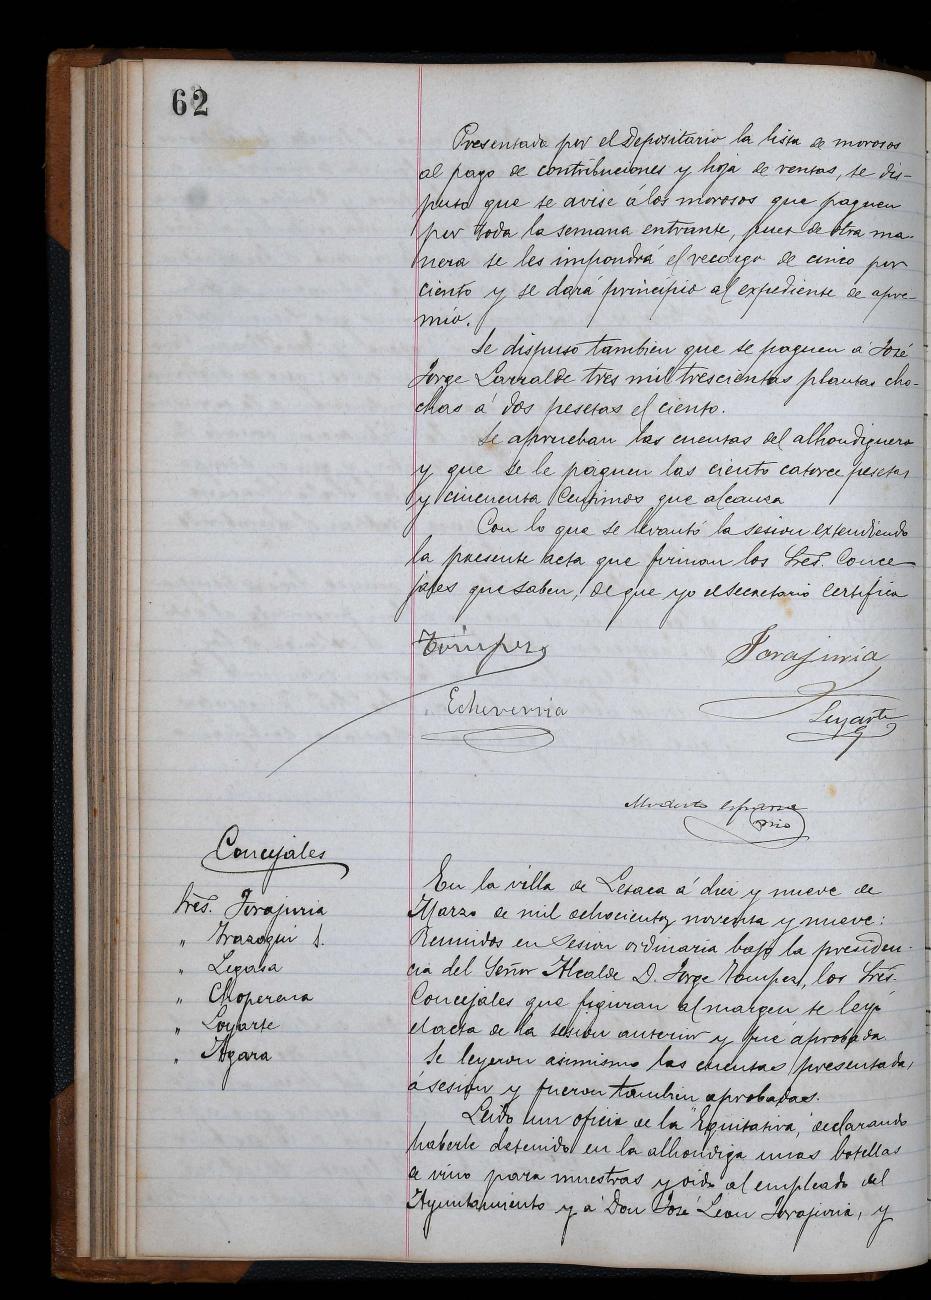 62
Presentada por el Depositario la lista de morosos
al pago de contribuciones y hoja de rentas, se dis-
puso que se avise á los morosos que paguen
por toda la semana entrante, pues de otra ma-
nera se les impondrá el recargo de cinco por
ciento y se dará principio al expediente de apre-
mio.
Se dispuso tambien que se paguen á José
Jorge Larralde tres mil trescientas plantas cho-
chas á dos pesetas el ciento.
Se aprueban las cuentas del alhondiguero
y que se le paguen las ciento catorce pesetas
y cincuenta Centimos que alcanza
Con lo que se levantó la sesion extendiendo
la presente acta que firman los Sres. Conce
jales que saben, de que yo el secretario Certifico
Tompes
Jorajuria
Echeverria
Loyarte
Modesto
Concejales
En la villa de Lesaca á diez y nueve de
Sres. Jorajuria
Marzo de mil ochocientos noventa y nueve:
" Irazoqui S.
Reunidos en Sesion ordinaria bajo la presiden-
" Legasa
cia del Señor Alcalde D. Jorge Tompes, los Sres.
" Choperena
Concejales que figuran al margen se leyó
" Loyarte
el acta de la sesion anterior y fué aprobada.
" Agara
Se leyeron asimismo las cuentas presentadas
á sesion y fueron tambien aprobadas.
Leido un oficio de la "Equitativa", declarando
haberle detenido en la alhondiga unas botellas
de vino para muestras y oido al empleado del
Ayuntamiento y á Don José Leon Jorajuria, y